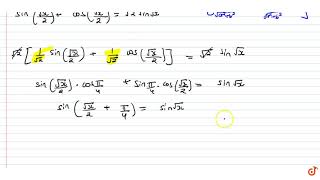 sin(√x/2) + cos(√x/2) = √2 sin√x
√2 [ 1/√2 sin(√x/2) + 1/√2 cos(√x/2) ] = √2 sin√x
sin(√x/2) · cos π/4 + sin π/4 · cos(√x/2) = sin√x
sin(√x/2 + π/4) = sin√x
doubtnut